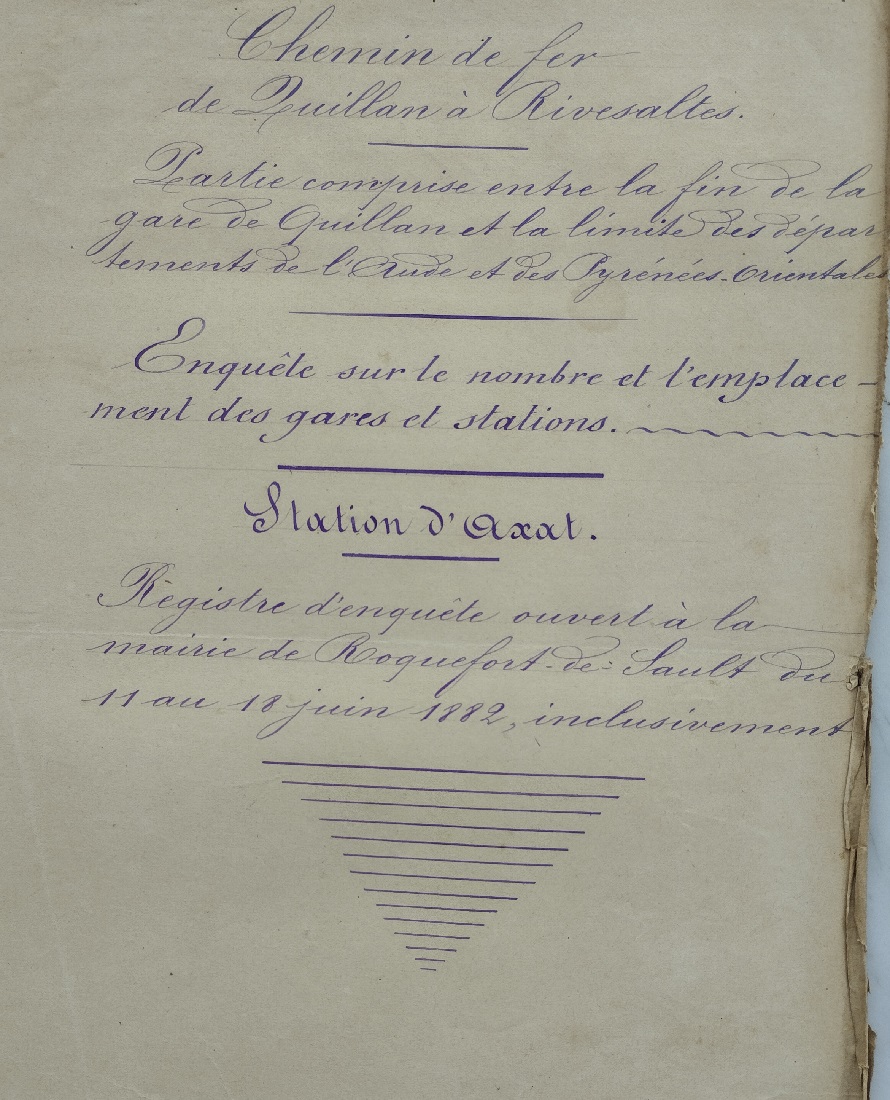 Chemin de fer
de Quillan à Rivesaltes.
Partie comprise entre la fin de la
gare de Quillan et la limite des dépar
tements de l'Aude et des Pyrénées-Orientales
Enquête sur le nombre et l'emplace-
ment des gares et stations.
Station d'Axat.
Régistre d'enquête ouvert à la
mairie de Roquefort-de-Sault du
11 au 18 juin 1882, inclusivement